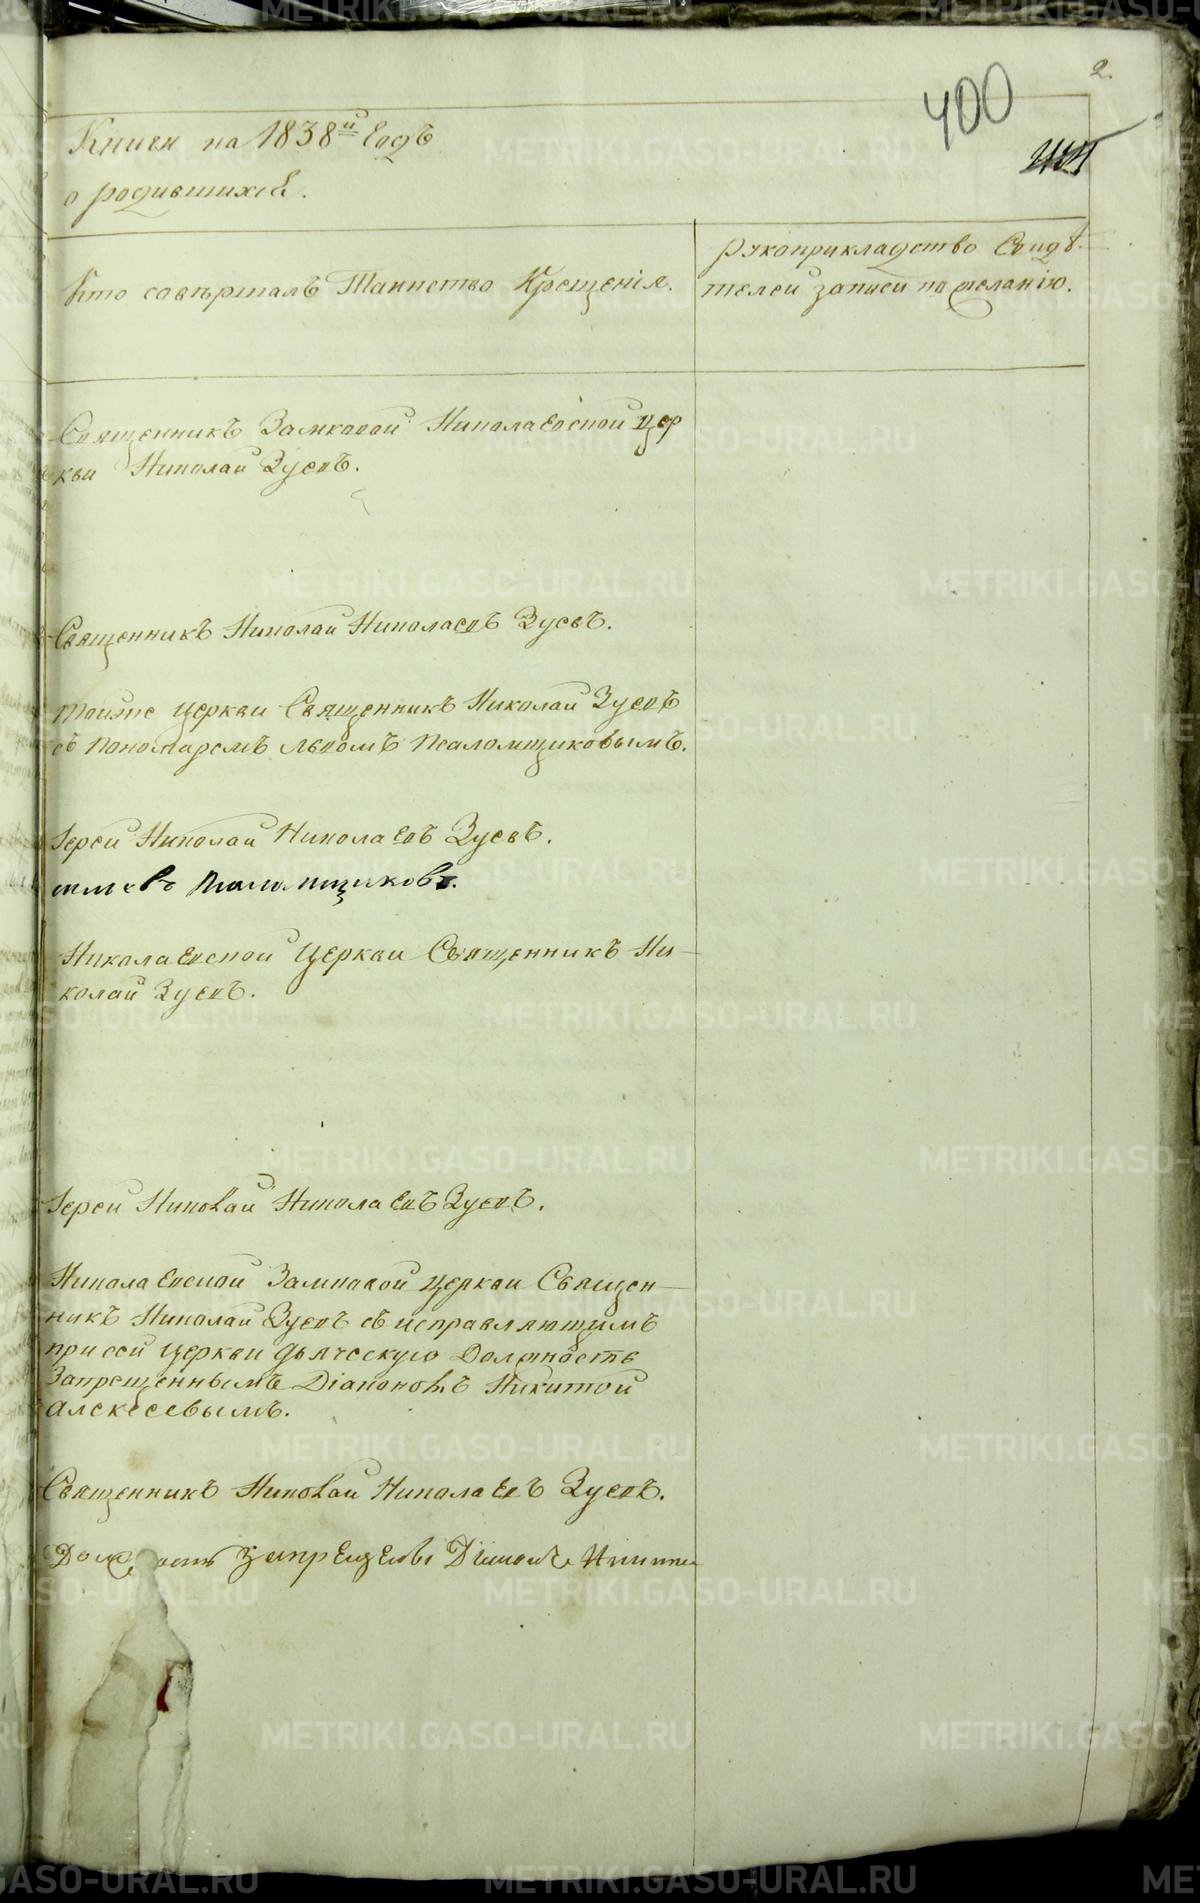 2.
400
Книги на 1838й Годъ
о родившихся.
Кто совершалъ Таинство Крещенія.
Рукоприкладство Свидѣ-
телей записей по желанію.
Священникъ Замковой Николаевской Цер
кви Николай Зуевъ.
Священникъ Николай Николаевъ Зуевъ.
Тойже Церкви Священникъ Николай Зуевъ
съ Пономаремъ Львомъ Псаломщиковымъ.
Іерей Николай Николаевъ Зуевъ.
Псаломщиковъ.
Николаевской Церкви Священникъ Ни-
колай Зуевъ.
Іерей Николай Николаевъ Зуевъ.
Николаевской Замковой Церкви Священ-
никъ Николай Зуевъ съ исправляющимъ
при сей Церкви дьяческую Должность
Запрещеннымъ Діакономъ Никитой
Алексеевымъ.
Священникъ Николай Николаевъ Зуевъ.
METRIKI.GASO-URAL.RU